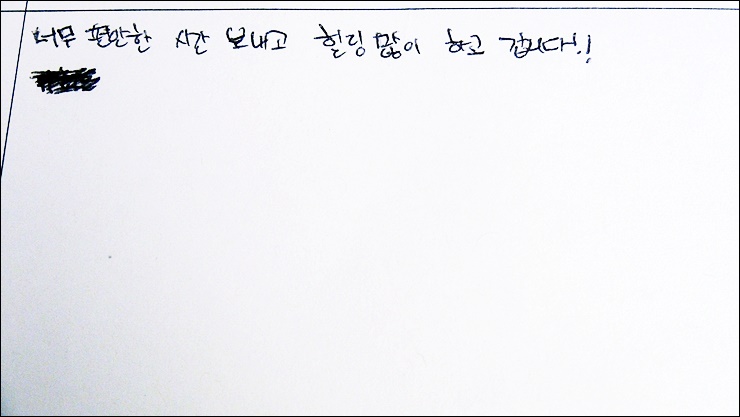 너무 편안한 시간 보내고 힐링 많이 하고 갑니다!!